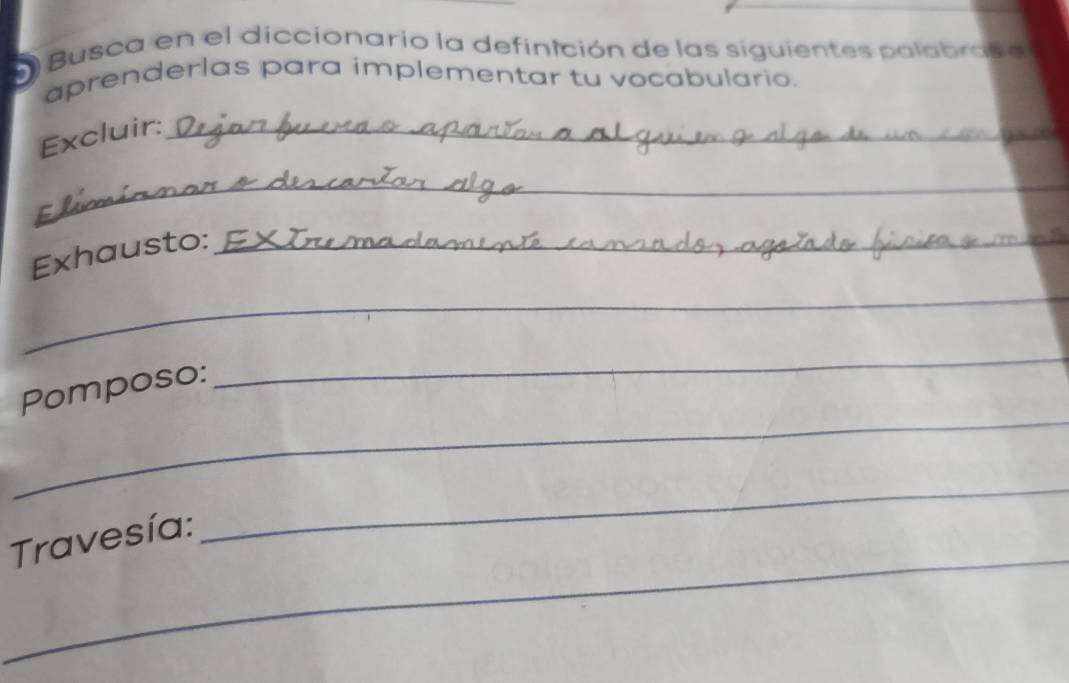 Busca en el diccionario la definición de las siguientes palabras
aprenderlas para implementar tu vocabulario.
Excluir: Dejar fuera o apartar a alguien o algo de un
Eliminar o descartar algo
Exhausto: EXTremadamente cansado, agotado física o
Pomposo:
Travesía: